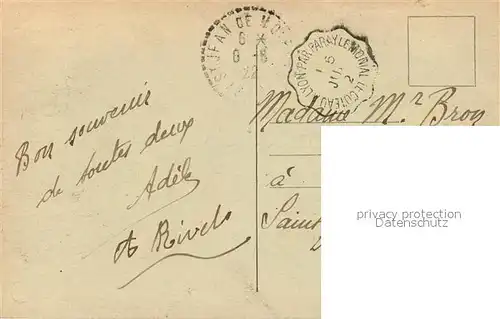 ST JEAN DE
6 *
6 - 6
22
LYON-PAR-PARAY LE MONIAL-LE COTEAU
5
2
Madame Mr Broy
à
Saint
Bon souvenir
de toutes deux
Adèle
A Rivels
privacy protection
Datenschutz